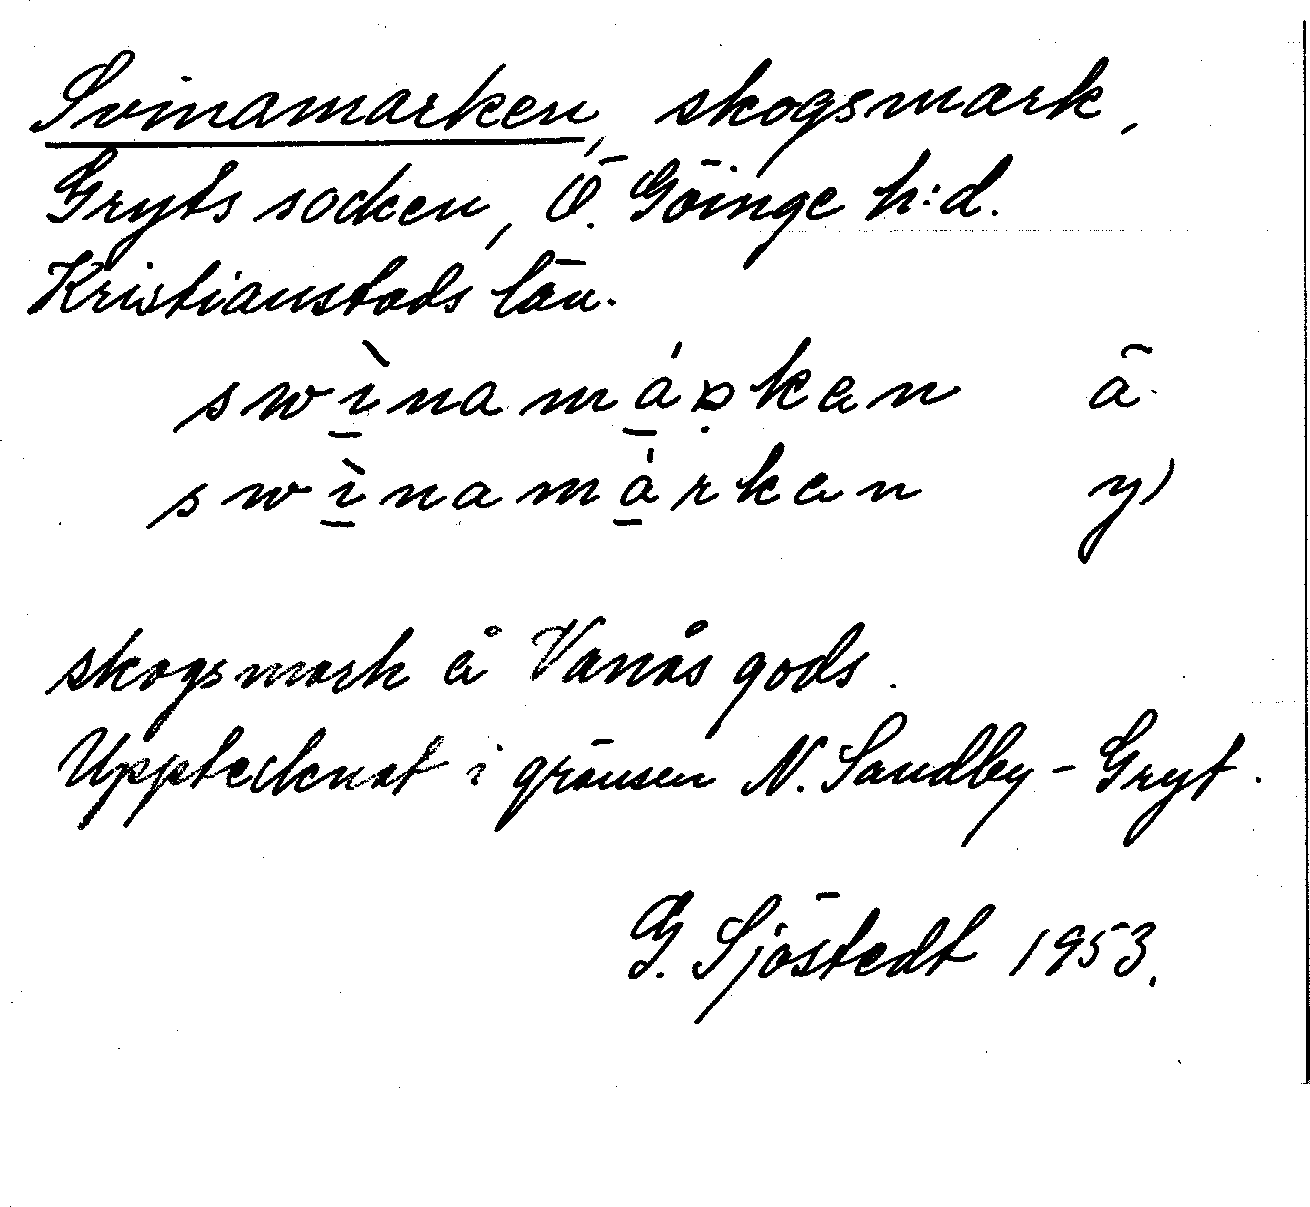 Svinamarken, skogsmark,
Gryts socken, Ö. Göinge h:d.
Kristianstads län.
swìnamáʀkən ä
swìnamárkən y)
skogsmark å Vanås gods.
Upptecknat i gränsen N. Sandby - Gryt.
G. Sjöstedt 1953.